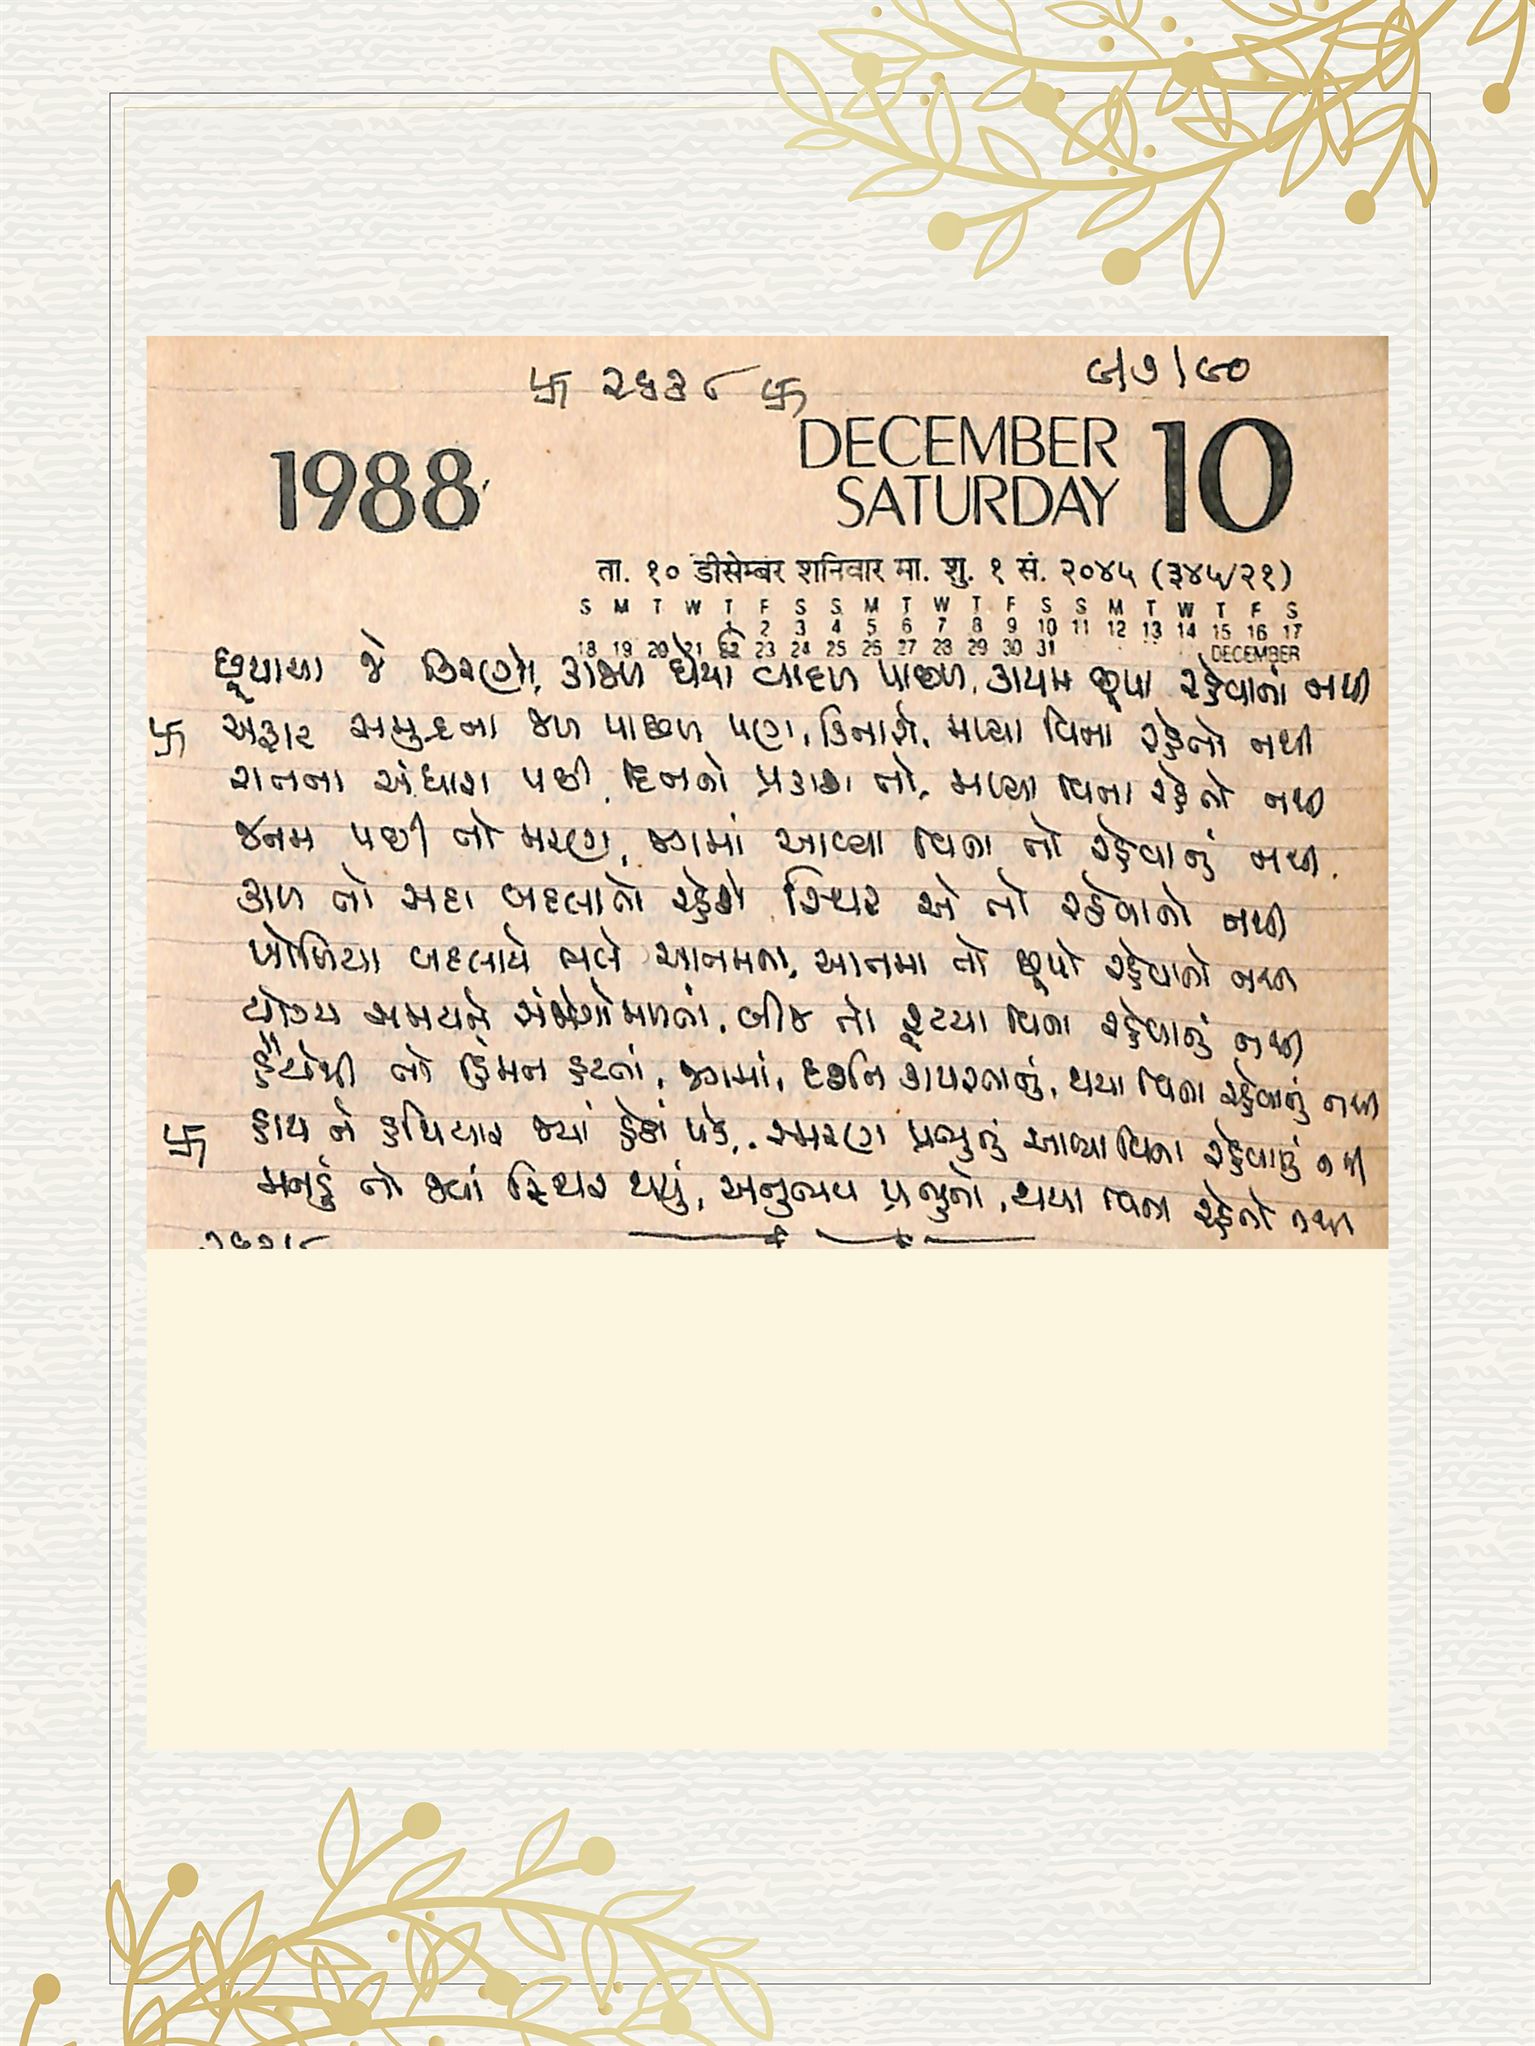 卐 ૨૬૩૮ 卐
૯/૭/૯૦
1988
DECEMBER 10
SATURDAY
ता. १० डीसेम्बर शनिवार मा. शु. १ सं. २०४५ (३४५/२१)
S M T W T F S S M T W T F S S M T W T F S
1 2 3 4 5 6 7 8 9 10 11 12 13 14 15 16 17
18 19 20 21 22 23 24 25 26 27 28 29 30 31
DECEMBER
છૂપાયા જે કિરણો, કાજળ ઘેર્યા વાદળ પાછળ, કાયમ છૂપા રહેવાનાં નથી
卐 અફાટ સમુદ્રના જળ પાછળ પણ, કિનારો, મળ્યા વિના રહેતો નથી
રાતના અંધારા પછી, દિનનો પ્રકાશ તો, મળ્યા વિના રહેતો નથી
જનમ પછી તો મરણ, જગમાં આવ્યા વિના તો રહેવાનું નથી.
કાળ તો સદા બદલાતો રહેશે, સ્થિર એ તો રહેવાનો નથી
ખોળિયા બદલાયે ભલે આતમના, આતમા તો છૂપો રહેવાનો નથી
યોગ્ય સમય ને સંજોગો મળતાં, બીજ તો ફૂટયા વિના રહેવાનું નથી
હૈયેથી તો હિંમત હટતાં, જગમાં, દર્શન કાયરતાનું, થયા વિના રહેવાનું નથી
卐 હાથ ને હથિયાર જ્યાં હેઠાં પડે, સ્મરણ પ્રભુનું આવ્યા વિના રહેવાનું નથી
મનડું તો જ્યાં સ્થિર થયું, અનુભવ પ્રભુનો, થયા વિના રહેતો નથી